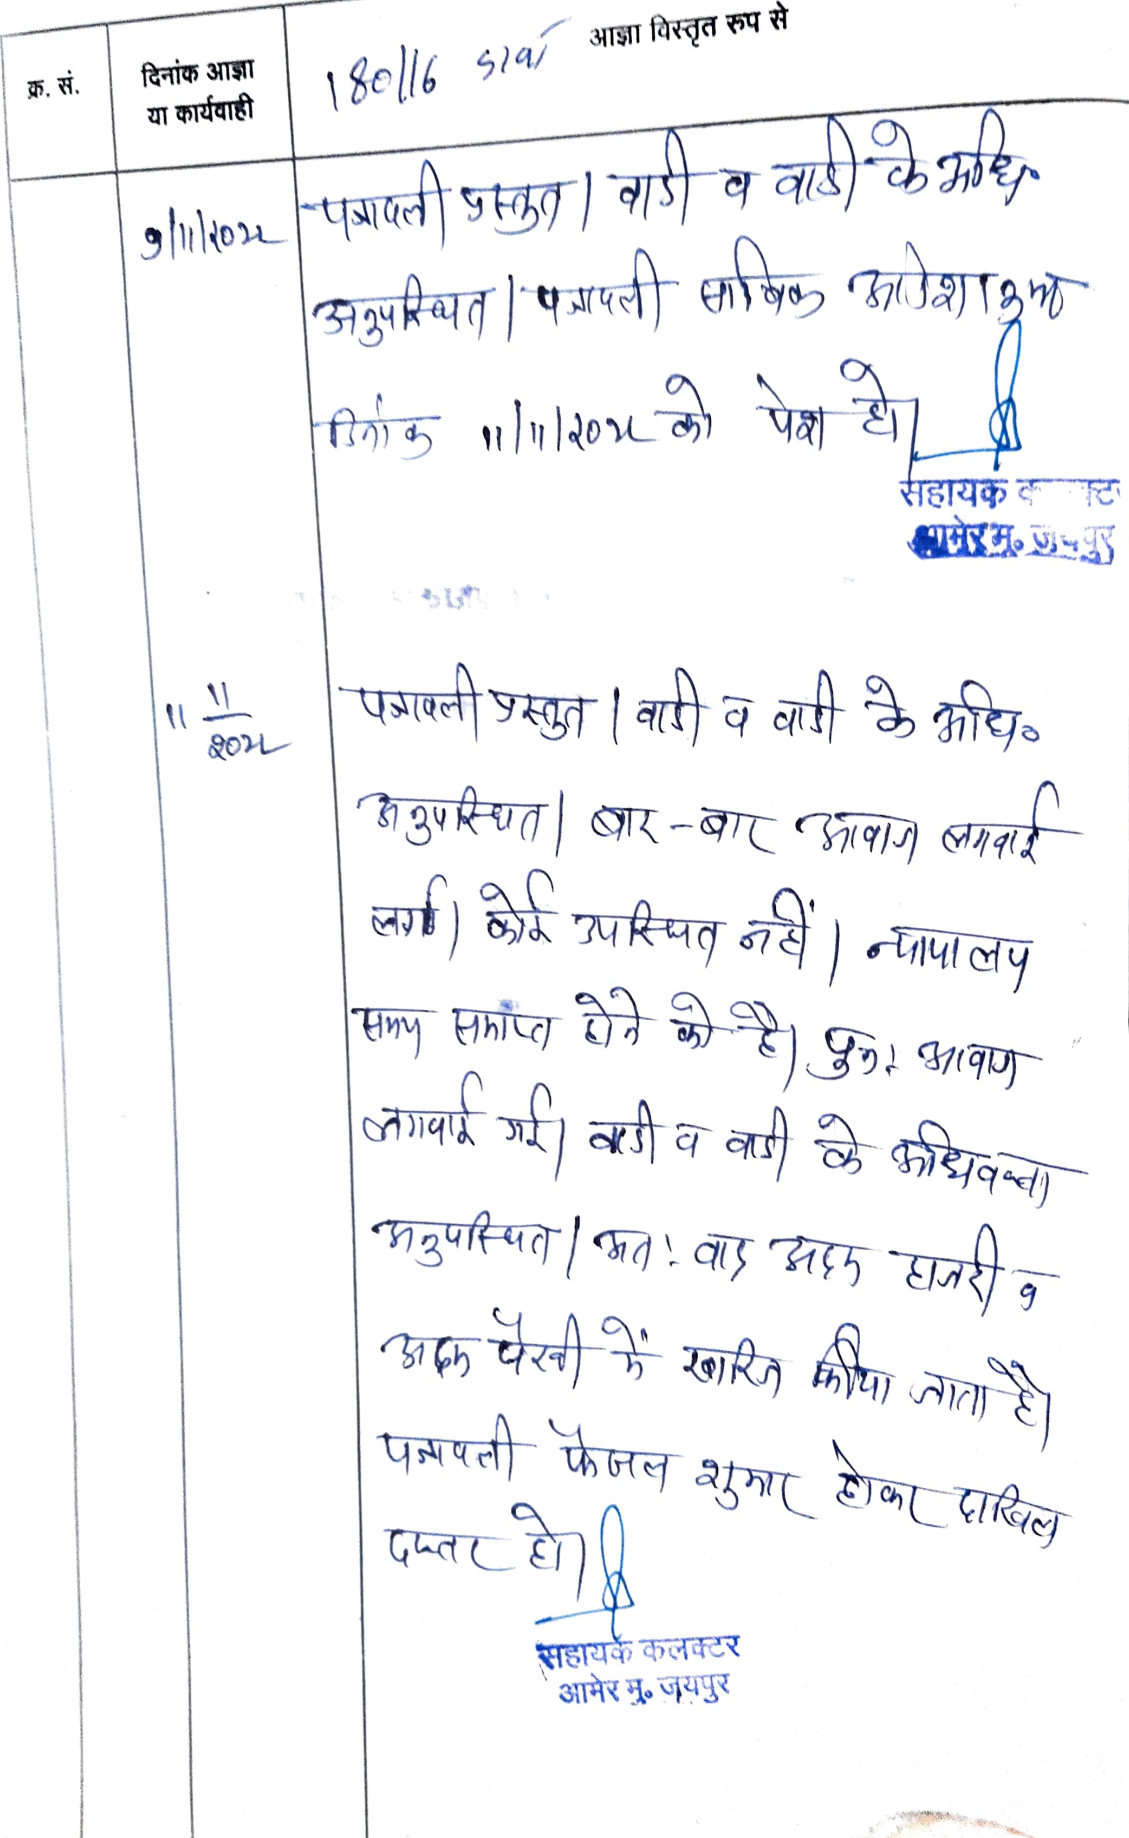 आज्ञा विस्तृत रुप से
क्र. सं.
दिनांक आज्ञा
या कार्यवाही
180/16
9/11/2022
पत्रावली प्रस्तुत। वादी व वादी के अधि०
अनुपस्थित। पत्रावली साबिक आदेशानुसार
दिनांक 11/11/2022 को पेश हो।
सहायक
आमेर मु. जयपुर
11 11/2022
पत्रावली प्रस्तुत। वादी व वादी के अधि०
अनुपस्थित। बार-बार आवाज लगवाई
कोई उपस्थित नहीं। न्यायालय
समय समाप्त होने को है। पुनः आवाज
लगवाई गई। वादी व वादी के अधिवक्ता
अनुपस्थित। अतः वाद अदम हाजरी व
अदम पैरवी में खारिज कीया जाता है।
पत्रावली फैजल शुमार होकर दाखिल
दफ्तर हो।
सहायक कलक्टर
आमेर मु. जयपुर